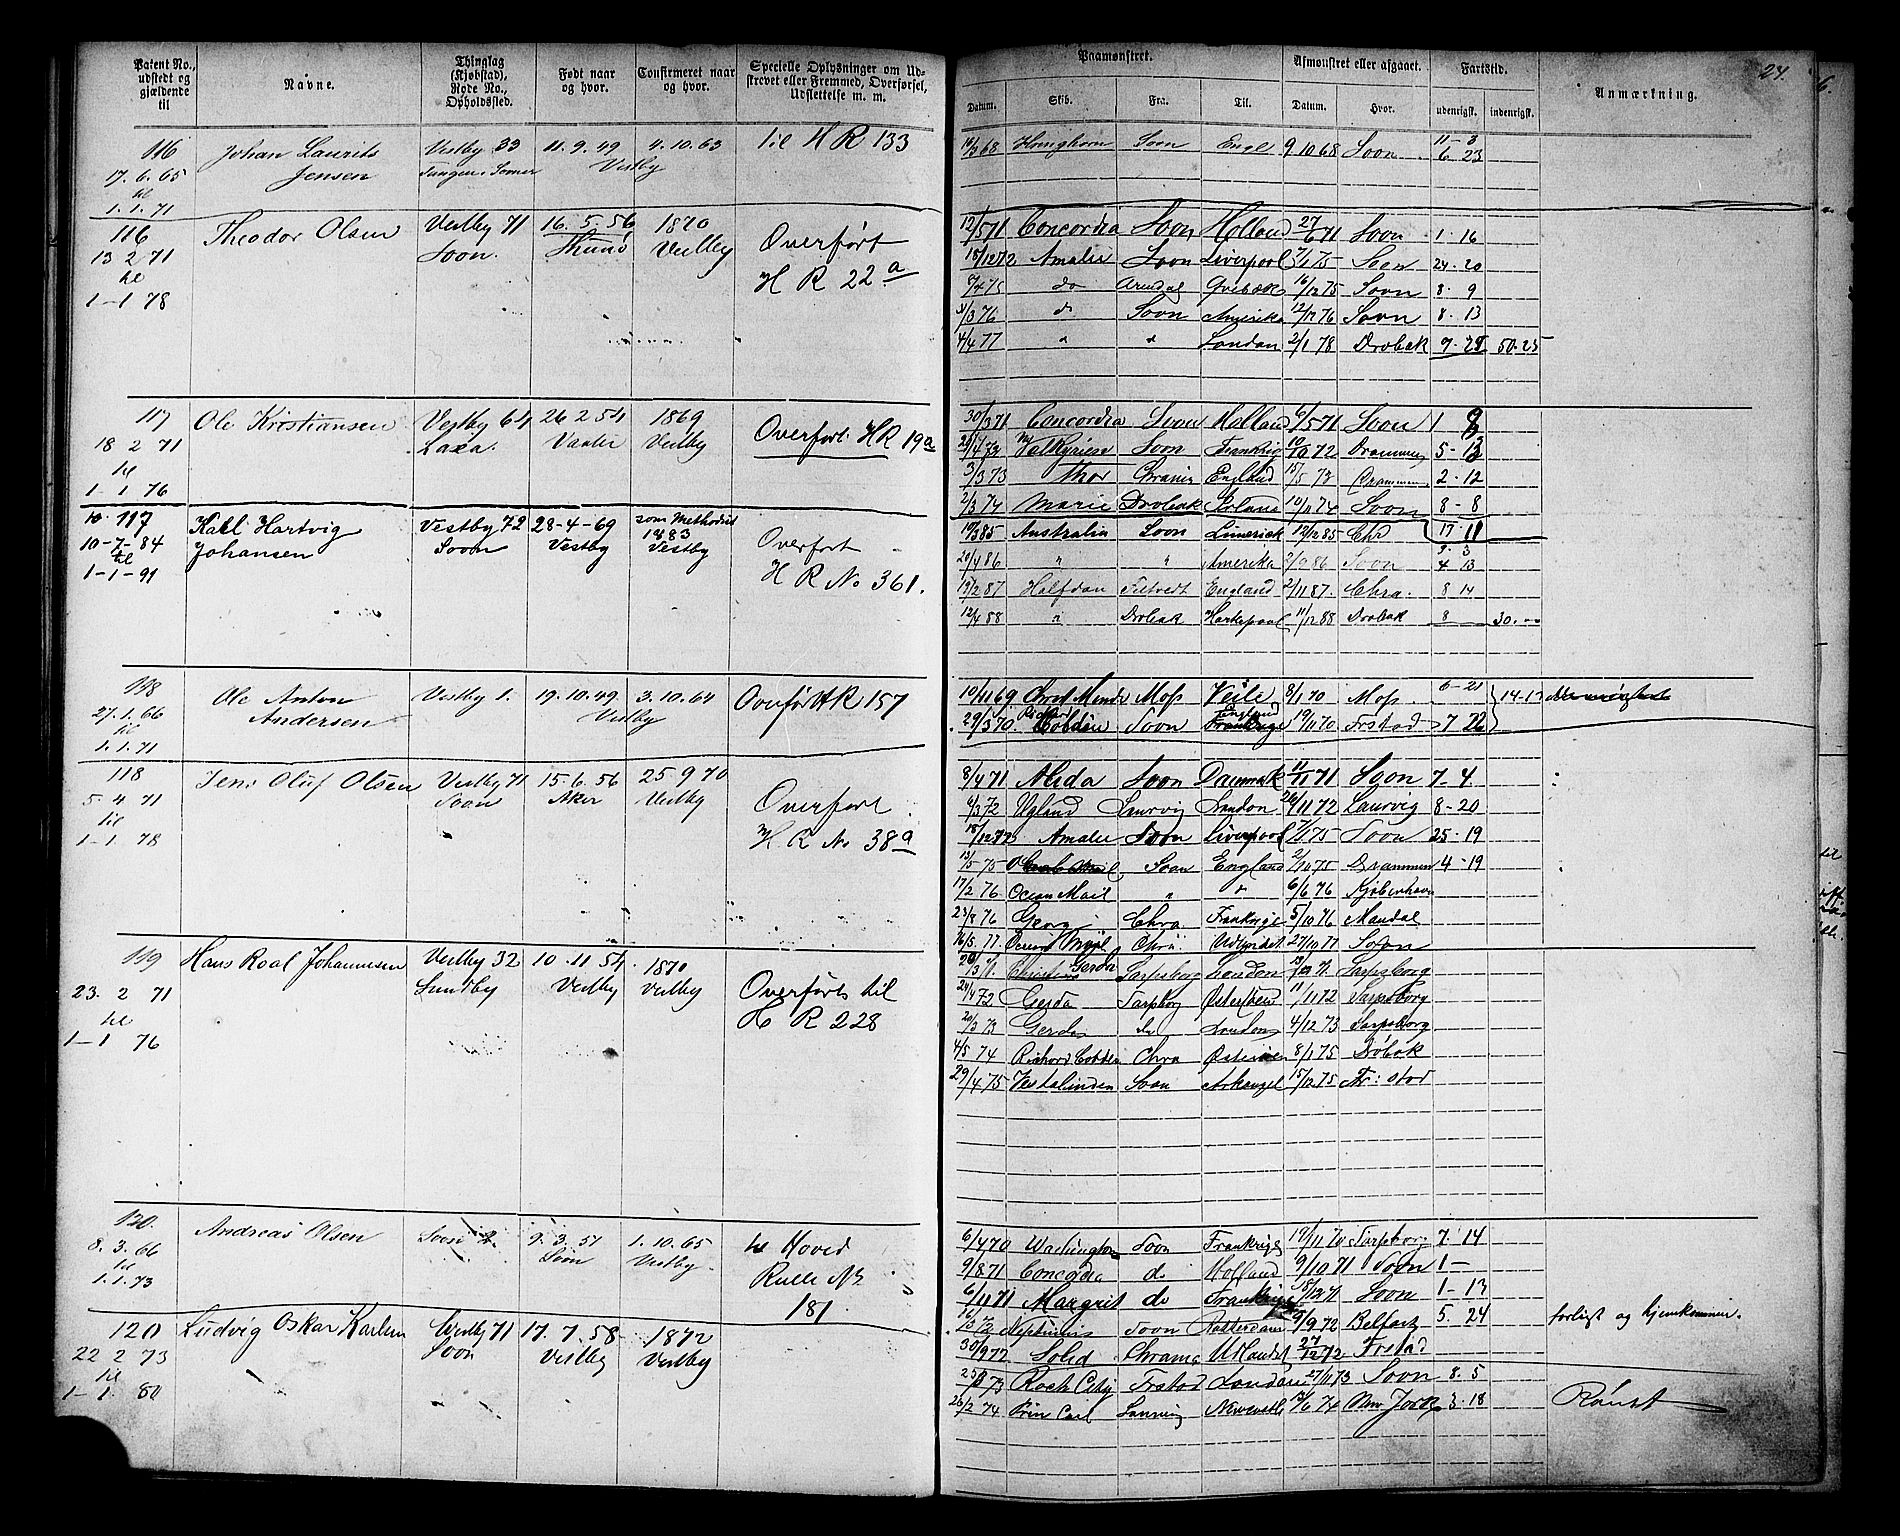 Patent No., udstedt og gjældende til
Navne.
Thinglag (Kjøbstad), Rode No., Opholdssted.
Født naar og hvor.
Confirmeret naar og hvor.
Specielle Oplysninger om Udskrevet eller Fremmed, Overførsel, Udslettelse m. m.
116 Johan Laurits Vestby 33 11. 9. 49 4. 10. 63 til H R 133
17. 6. 65 Jensen Vestby
til
1. 1. 71
116 Theodor Olsen Vestby 71 16. 5. 56 1870 Overført
13 2 71 Soon. Vestby H R 22 a
til
1-1 78
117 Ole Kristiansen Vestby 64 26 2 54 1869 Overført HR 19a
18 2 71 Vaaler Vestby
til
1-1 76
117 Karl Hartvig Vestby 72 28-4-69 som Methodist
10-7-84 Johansen Soon Vestby 1883 Vestby Overført
til
1-1-91 H R No 361.
118 Ole Anton Vestby 1. 19. 10. 49 3. 10. 64 HR 157
27. 1. 66 Andersen Vestby
til
1. 1. 71
118 Jens Oluf Olsen Vestby 71 15. 6. 56 25 9 70 Overført
5. 4 71 Soon Aker Vestby
til H R No 38 a
1-1 78
119 Hans Roal Johannesen Vestby 32 10 11 54 1870 Overførts til
23. 2 71 Sundby Vestby Vestby H R 228
til
1-1 76
120. Andreas Olsen Soon 2 1. 10. 65 Hoved
8. 3. 66 Soon Vestby Rulle No
til 181
1. 1. 73
120 Ludvig Oskar Karlsen Vestby 71 17. 7. 58 1872
22 2 73 Soon Vestby Vestby
til
1-1. 80
24.
Paamønstret.
Afmønstret eller afgaaet.
Fartstid.
Anmærkning.
Datum. Skib. Fra. Til. Datum. Hvor. udenrigst. indenrigst.
11-3
Soon Engl 9 10 68 Soon 6 23
12/5 71 Concordia Soon Holland 27/6 71 Soon 1. 16
18/12 72 Amalie Soon Liverpool 7/1 75 Soon 24. 20
do Arendal 16/12 75 Soon 8. 9
do Soon Amerika 12/12 76 Soon 8. 13
4/4 77 " " London 2/1 78 Drobak 9. 25 50. 25
30/3 71 Concordia Soon Holland 6/5 71 Soon 1
Valkyrien Soon Frankrig 10/10 72 Drammen 5-13
3/3 73 Thor Chrania England 15/5 73 Drammen 2-12
2/3 74 Marie Drobak 10/11 74 Soon 8-8
Australia Soon Limerick 12/12 85 Chr 17 11
9. 3
20/4 86 " " Amerika 2/9 86 Soon 4 13
12/2 87 Halfdan England 2/11 87. Chra. 8 14
12/4 88 " Drobak Hartepool 11/12 88 Drobak 8 30.
6-21
10/11 69 Moss Veile 8/1 70 Moss 14. 13
England
29/3 70 Richard Cobden Soon Frankrige 19/11 70 Frstad 7 22
8/4 71 Alida Soon Danmark 11/11 71 Soon 7-4
6/3 72 Ugland Laurvig London 26/11 72 Laurvig 8-20
18/12 72 Amalie Soon Liverpool 7/1 75 Soon 25-19
13/5 75 Soon England 2/10 75 Drammen 4-19
17/2 76 Ocean Mail " " 6/6 76 Kjøbenhavn
23/8 76 Georg Chra. Frankrige 5/10 76 Mandal
16/5. 77. 27/10 77 Soon
Gerda Sarpsborg London Sarpsborg
24/4 72 Gerda Sarpborg 11/11 72 Sarpsborg
20/3 73 Gerda do London 4/12 73 Sarpsborg
4/5 74 Richard Cobden Chra 8/1 75 Drøbak
29/4 75 Vestalinden Soon Arkangel 15/12 75 Fr: stad
6/4 70 Washington Soon Frankrige 19/11 70 Sarpsborg 7. 14
9/8 71 Concordia do Holland 9/10 71 Soon 1-
6/11 71 Margrit do Frankrige Soon 1-13
Neptunus Soon Rotterdam 5/9 72 Belfast 5. 24 forligt og hjemkommen.
30/9 72 Solid Chrania Udlandet 27/12 72 Frstad
Rock City Frstad London 27/11 73 Soon 8. 5
26/2 74 Newcastle New York 3. 18 Rømt